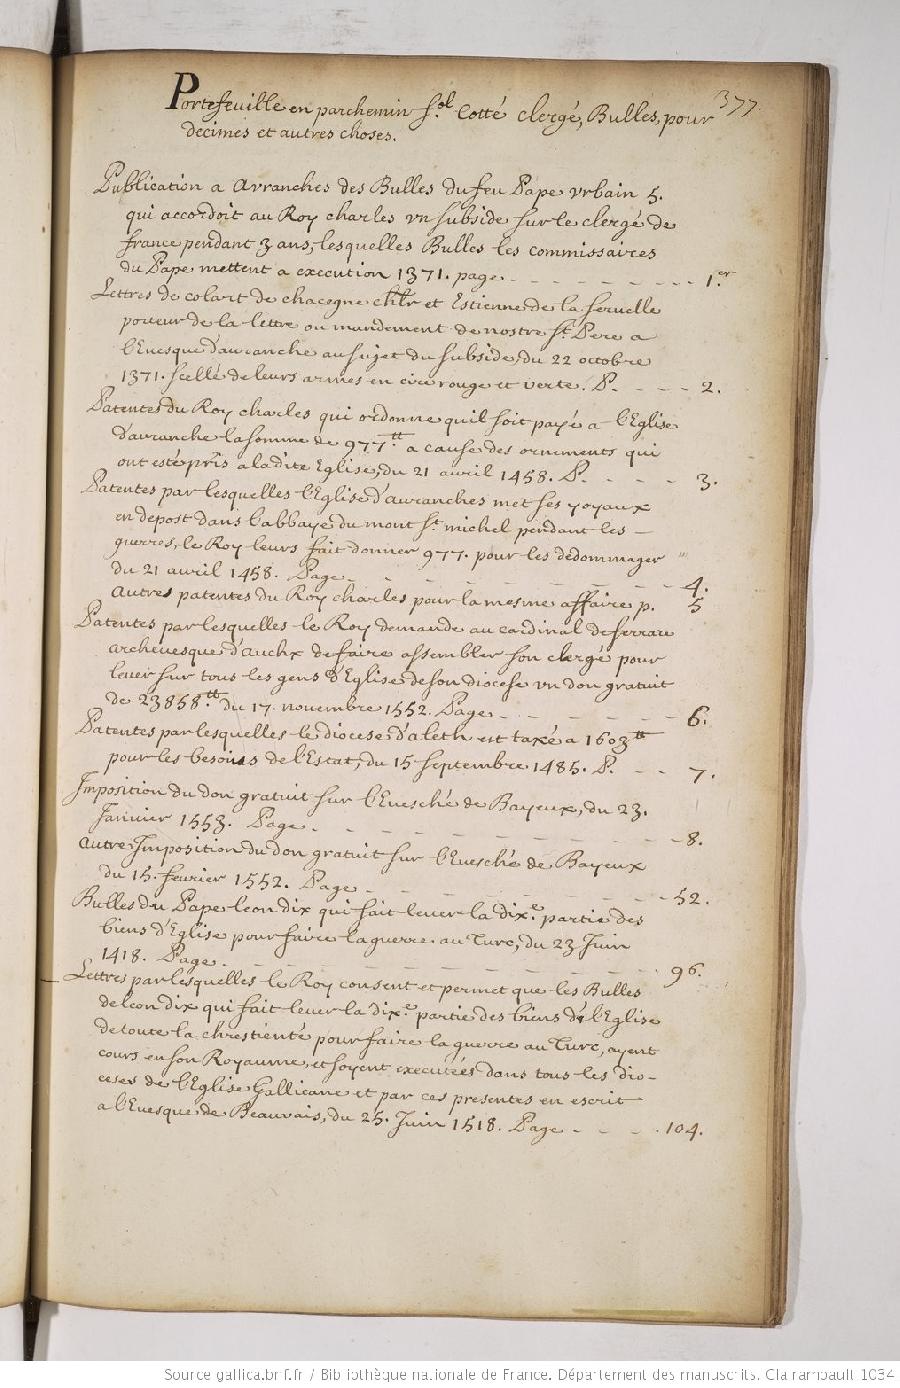 377
Portefeuille en parchemin f.ol Cotté clergé, Bulles, pour
decimes et autres choses.
Publication a Avranches des Bulles du feu Pape Vrbain 5.
qui accordoit au Roy charles vn subside sur le clergé de
france pendant 3 ans, lesquelles Bulles les commissaires
du Pape mettent a execution 1371. page - - - 1.er
Lettres de colart de chacegne et Estienne de la servelle
porteur de la lettre ou mandement de nostre St. Pere a
l'Euesque d'auranche au sujet du subside, du 22 octobre
1371. scellé de leurs armes en cire rouge et verte. P. - - - 2.
Patentes du Roy charles qui ordonne qu'il soit payé a l'Eglise
d'auranche la somme de 977.tt a cause des ornements qui
ont esté pris a ladite Eglise, du 21 auril 1458. P. - - - 3.
Patentes par lesquelles l'Eglise d'auranches met ses joyaux
en depost dans l'abbaye du mont St. michel pendant les -
guerres, le Roy leurs fait donner 977. pour les dedommager
du 21 auril 1458. Page - - - 4.
autres patentes du Roy charles pour la mesme affaire p. 5
Patentes par lesquelles le Roy demande au cardinal de ferrare
archeuesque d'auchx de faire assembler son clergé pour
leuer sur tous les gens d'Eglise de son diocese vn don gratuit
de 23858.tt du 17. nouembre 1552. Page - - - 6.
Patentes par lesquelles le diocese d'aleth est taxé a 1603tt
pour les besoins de l'Estat, du 15 septembre 1485. P. - - 7.
Imposition du don gratuit sur l'Euesché de Bayeux, du 23.
Januier 1553. Page - - - 8.
autre Imposition du don gratuit sur l'Euesché de Bayeux
du 15. feurier 1552. Page - - - 52.
Bulles du Pape leon dix qui fait leuer la dix.e partie des
biens d'Eglise pour faire la guerre au Turc, du 23 Juin
1418. Page - - - 96.
Lettres par lesquelles le Roy consent et permet que les Bulles
de leon dix qui fait leuer la dix.e partie des biens de l'Eglise
de toute la chrestienté pour faire la guerre au Turc, ayent
cours en son Royaume, et soyent executées dans tous les dio-
ceses de l'Eglise Gallicane et par ces presentes en escrit
a l'Euesque de Beauvais, du 25. Juin 1518. Page - - - 104.
Source gallica.bnf.fr / Bibliothèque nationale de France. Département des manuscrits. Clairambault 1034